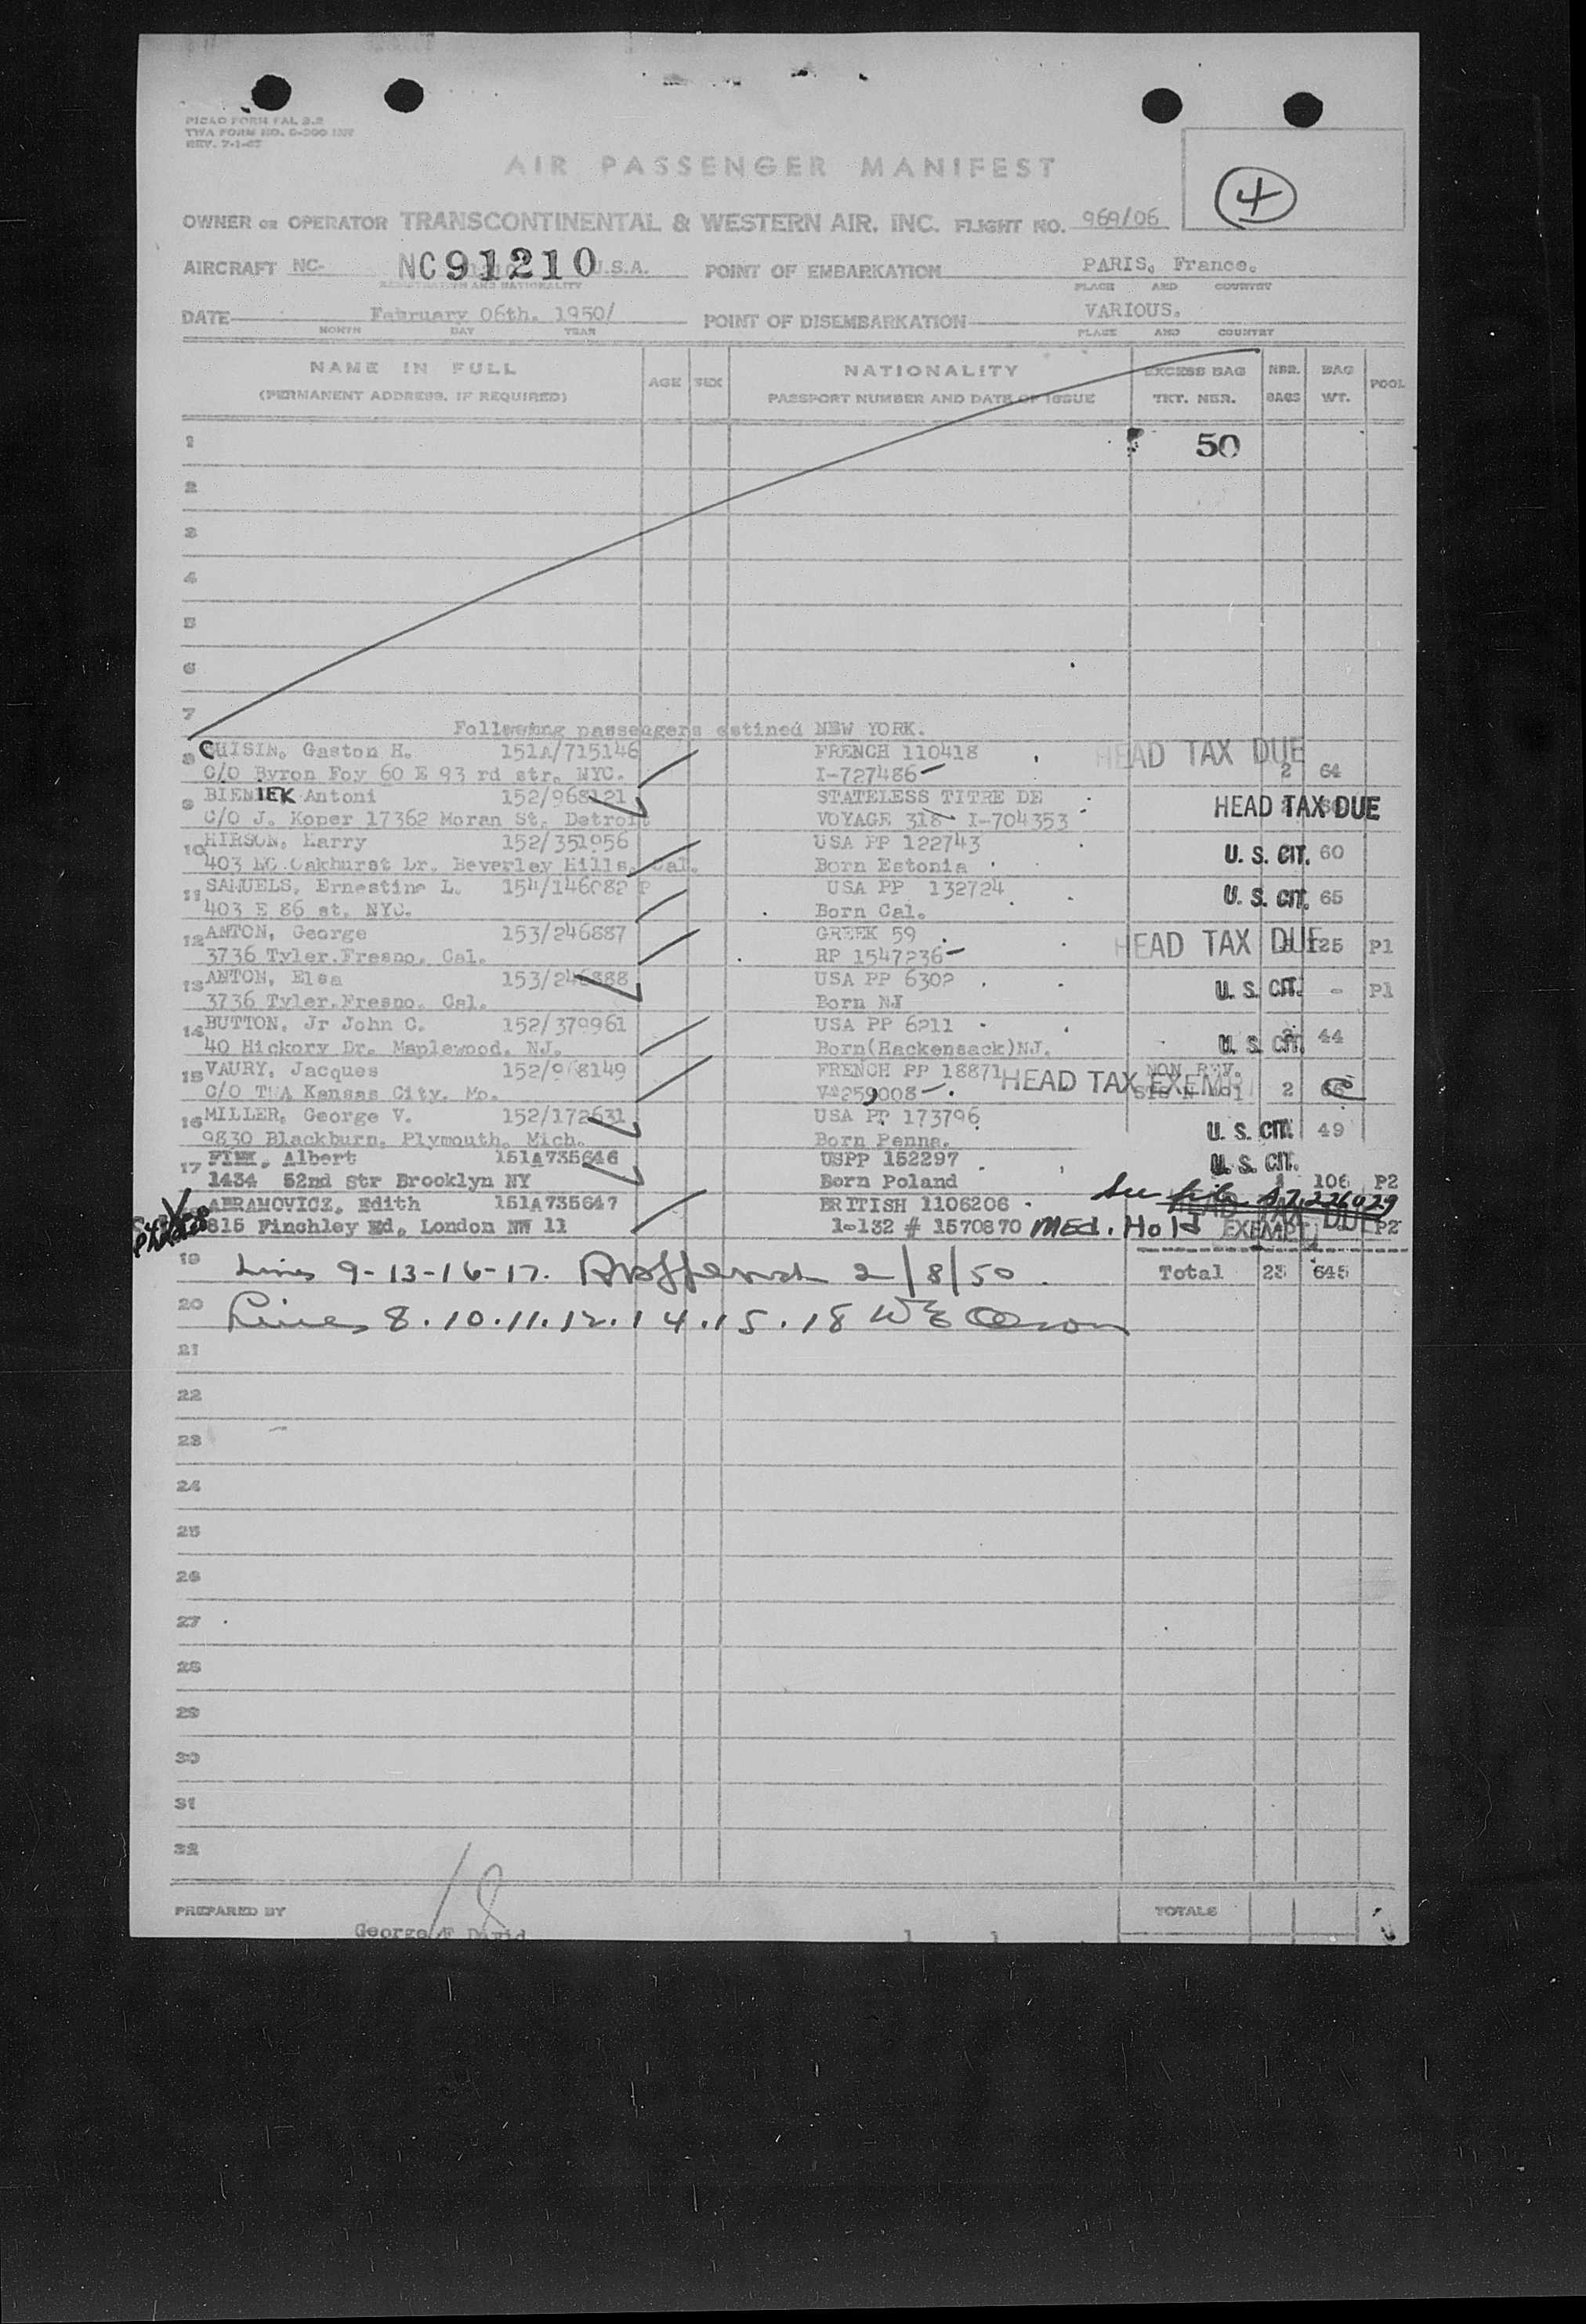 PICAO FORM FAL 2.2
TWA FORM NO. D-200 INT
REV. 7-1-47
AIR PASSENGER MANIFEST
4
OWNER OR OPERATOR TRANSCONTINENTAL & WESTERN AIR, INC. FLIGHT NO. 969/06
AIRCRAFT NC- NC91210 U.S.A. POINT OF EMBARKATION PARIS, France.
REGISTRATION AND NATIONALITY PLACE AND COUNTRY
DATE February 06th. 1950/ POINT OF DISEMBARKATION VARIOUS.
MONTH DAY YEAR PLACE AND COUNTRY
NAME IN FULL AGE SEX NATIONALITY EXCESS BAG NBR. BAG POOL
(PERMANENT ADDRESS, IF REQUIRED) PASSPORT NUMBER AND DATE OF ISSUE TKT. NBR. BAGS WT.
1 50
2
3
4
5
6
7
Following passengers estined NEW YORK.
8 CUISIN, Gaston H. 151A/715146 FRENCH 110418 HEAD TAX DUE
C/O Byron Foy 60 E 93 rd str. NYC. I-727486 2 64
9 BIENIEK Antoni 152/968121 STATELESS TITRE DE HEAD TAX DUE
C/O J. Koper 17362 Moran St. Detroit VOYAGE 318 I-704353
10 HIRSON, Harry 152/351956 USA PP 122743 U. S. CIT. 60
403 NO.Oakhurst Dr. Beverley Hills. Cal. Born Estonia
11 SAMUELS, Ernestine L. 154/146082 P USA PP 132724 U. S. CIT. 65
403 E 86 st. NYC. Born Cal.
12 ANTON, George 153/246887 GREEK 59 HEAD TAX DUE 125 P1
3736 Tyler.Fresno. Cal. RP 1547236
13 ANTON, Elsa 153/246888 USA PP 6302 U. S. CIT. - P1
3736 Tyler.Fresno. Cal. Born NJ
14 BUTTON, Jr John C. 152/379961 USA PP 6211 U. S. CIT. 44
40 Hickory Dr. Maplewood. NJ. Born(Hackensack)NJ.
15 VAURY, Jacques 152/968149 FRENCH PP 18871 HEAD TAX EXEMPT NON REV.
C/O TWA Kansas City. Mo. V-259008 2
16 MILLER, George V. 152/172631 USA PP 173796 U. S. CIT. 49
9830 Blackburn. Plymouth. Mich. Born Penna.
17 FINK, Albert 151A735646 USPP 152297 U. S. CIT.
1434 52nd Str Brooklyn NY Born Poland 1 106 P2
ABRAMOVICZ, Edith 151A735647 BRITISH 1106206 See file HEAD TAX DUE
815 Finchley Rd, London NW 11 1-132 # 1570870 Med. Hold EXEMPT P2
19 Lines 9-13-16-17. 2/8/50 Total 23 645
20 Lines 8.10.11.12.14.15.18
21
22
23
24
25
26
27
28
29
30
31
32
18
PREPARED BY TOTALS
George T David